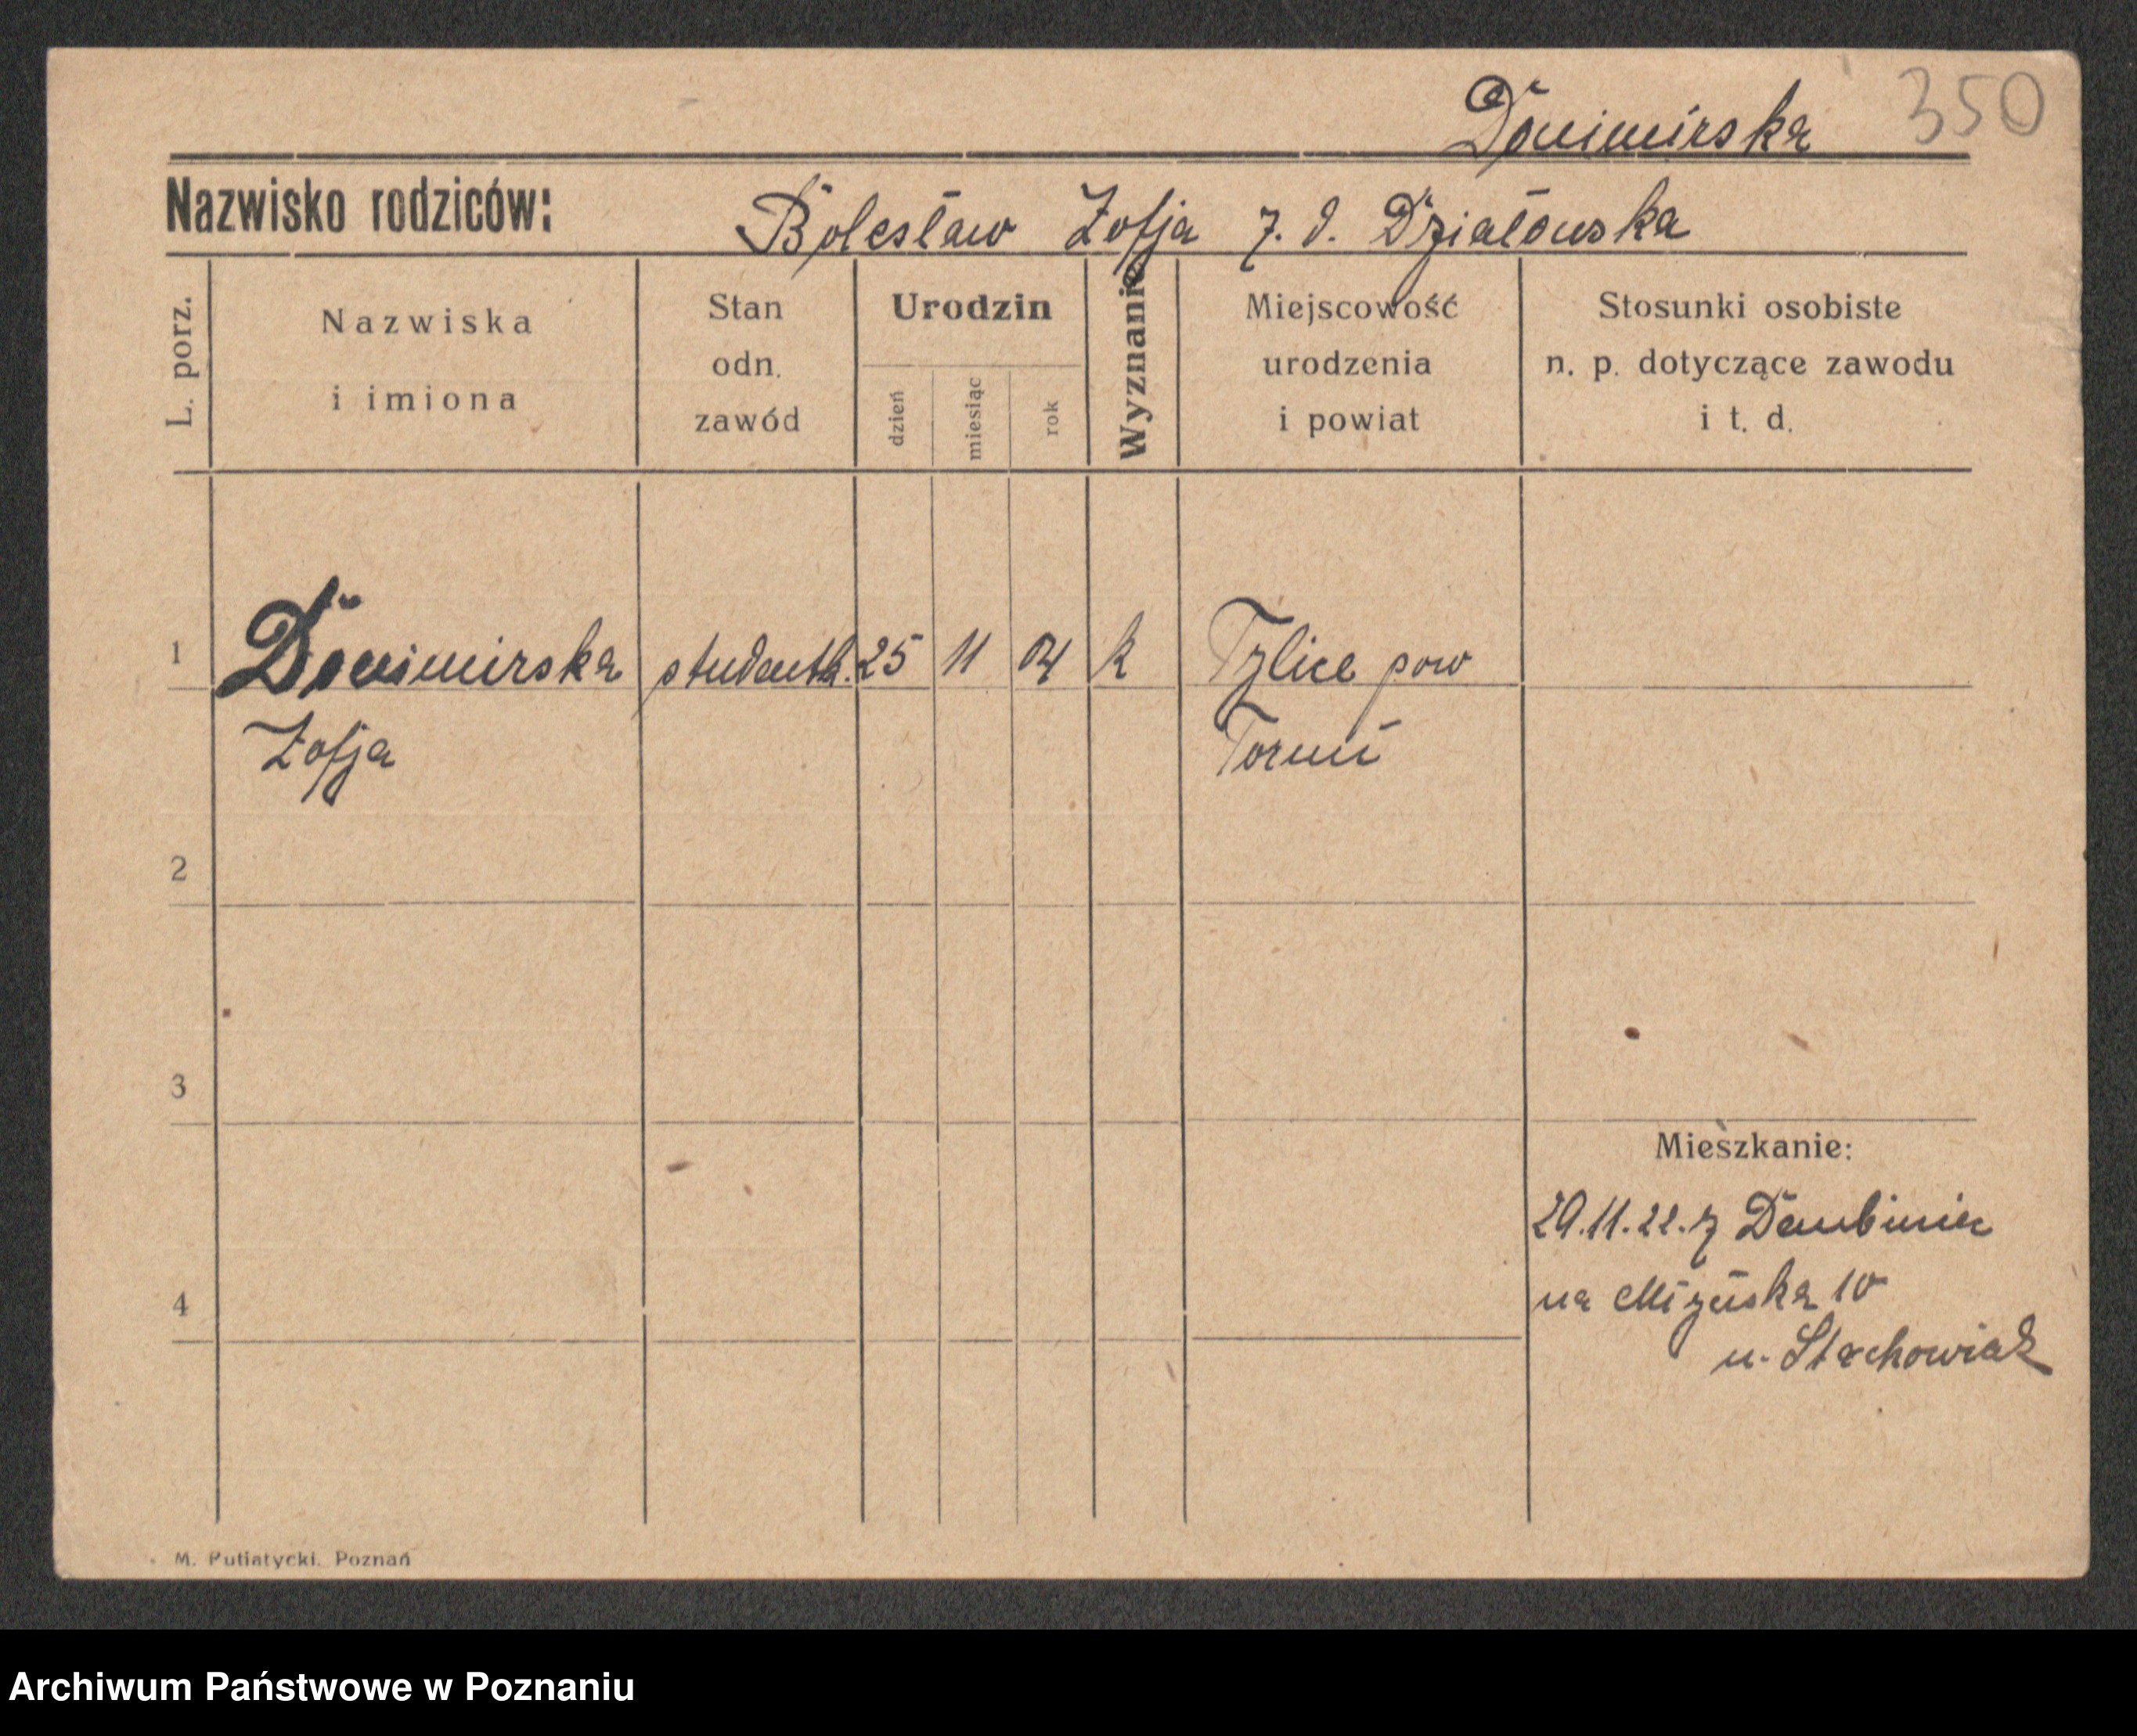 Donimirska 350
Nazwisko rodziców: Bolesław Zofja z. d. Działowska
L. porz.
Nazwiska
i imiona
Stan
odn.
zawód
Urodzin
dzień
miesiąc
rok
Wyznanie
Miejscowość
urodzenia
i powiat
Stosunki osobiste
n. p. dotyczące zawodu
i t. d.
1 Donimirska studentk. 25 11 04 k Tylice pow
Zofja Toruń
2
3
Mieszkanie:
29.11.22. z
4
na 10
u. Stachowiak
M. Putiatycki. Poznań
Archiwum Państwowe w Poznaniu